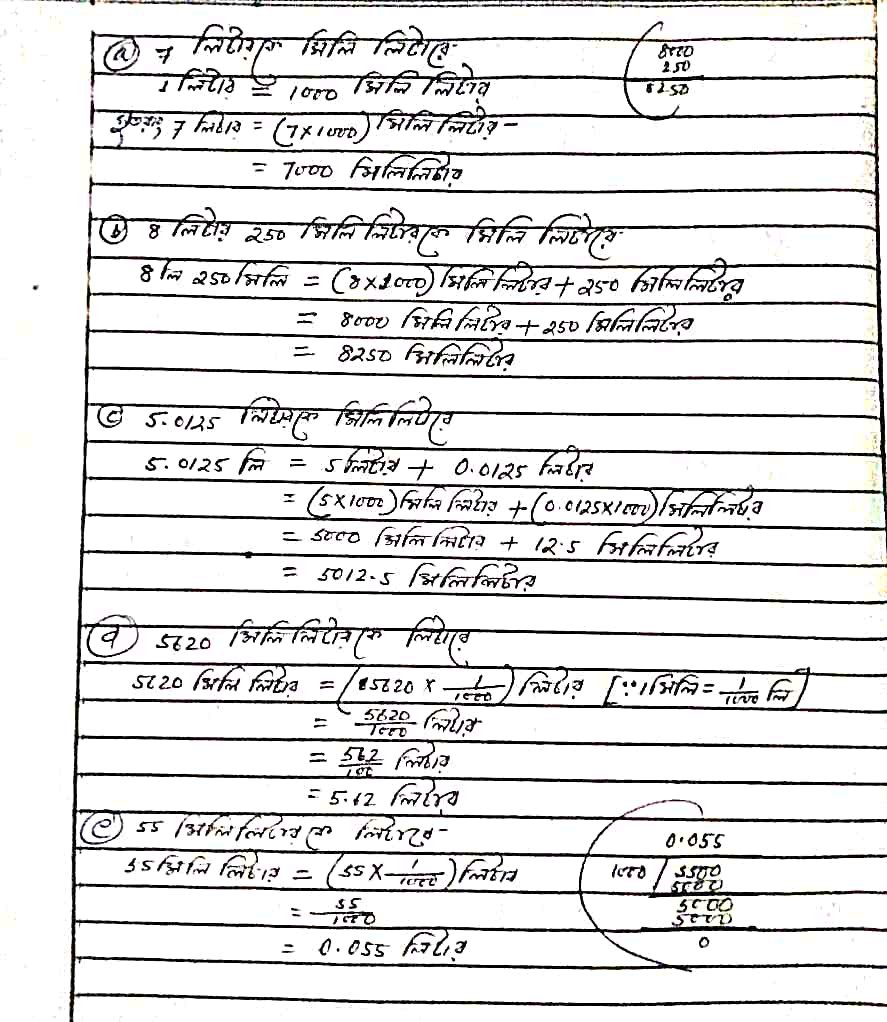 ⓐ 7 লিটারকে মিলি লিটারে
1 লিটার = 1000 মিলি লিটার
সুতরাং, 7 লিটার = (7×1000) মিলি লিটার
= 7000 মিলিলিটার
8000
250
8250
ⓑ 8 লিটার 250 মিলি লিটারকে মিলি লিটারে
8 লি 250 মিলি = (8×1000) মিলি লিটার + 250 মিলি লিটার
= 8000 মিলি লিটার + 250 মিলিলিটার
= 8250 মিলিলিটার
ⓒ 5.0125 লিটারকে মিলিলিটারে
5.0125 লি = 5 লিটার + 0.0125 লিটার
= (5×1000) মিলি লিটার + (0.0125×1000) মিলিলিটার
= 5000 মিলি লিটার + 12.5 মিলিলিটার
= 5012.5 মিলিলিটার
ⓓ 5620 মিলি লিটারকে লিটারে
5620 মিলি লিটার = (5620 × 1/1000) লিটার [∵ 1 মিলি = 1/1000 লি]
= 5620/1000 লিটার
= 562/100 লিটার
= 5.62 লিটার
ⓔ 55 মিলি লিটারকে লিটারে
55 মিলি লিটার = (55 × 1/1000) লিটার
= 55/1000
= 0.055 লিটার
0.055
1000 / 5500
5000
5000
5000
0